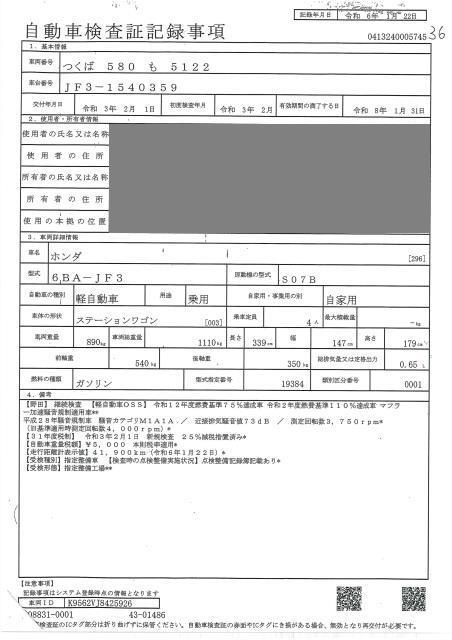 記録年月日 令和 6年 1月 22日
自動車検査証記録事項
0413240005745 36
1.基本情報
車両番号 つくば 580 も 5122
車台番号 JF3-1540359
交付年月日 令和 3年 2月 1日 初度検査年月 令和 3年 2月 有効期間の満了する日 令和 8年 1月 31日
2.使用者・所有者情報
使用者の氏名又は名称
使用者の住所
所有者の氏名又は名称
所有者の住所
使用の本拠の位置
3.車両詳細情報
車名 ホンダ [296]
型式 6BA-JF3 原動機の型式 S07B
自動車の種別 軽自動車 用途 乗用 自家用・事業用の別 自家用
車体の形状 ステーションワゴン [003] 乗車定員 4人 最大積載量 -kg
車両重量 890kg 車両総重量 1110kg 長さ 339cm 幅 147cm 高さ 179cm
前軸重 540kg 後軸重 350kg 総排気量又は定格出力 0.65 L
燃料の種類 ガソリン 型式指定番号 19384 類別区分番号 0001
4.備考
【野田】継続検査 【軽自動車OSS】 令和12年度燃費基準75%達成車 令和2年度燃費基準110%達成車 マフラ
ー加速騒音規制適用車**
平成28年騒音規制車 騒音カテゴリM1A1A / 近接排気騒音値73dB / 測定回転数3,750rpm*
(旧基準適用時測定回転数4,000rpm)*
【31年度税制】 令和3年2月1日 新規検査 25%減税措置済み*
【自動車重量税額】¥5,000 本則税率適用*
【走行距離計表示値】41,900km(令和6年1月22日)*
【受検種別】指定整備車 【検査時の点検整備実施状況】点検整備記録簿記載あり*
【受検形態】指定整備工場**
【注意事項】
記録事項はシステム登録時点の情報となります
車両ID K9562VJ8425926
08831-0001 43-01486
検査証のICタグ部分は折り曲げずに保管ください。自動車検査証の券面やICタグにき損がある場合、無効となり再交付が必要です。